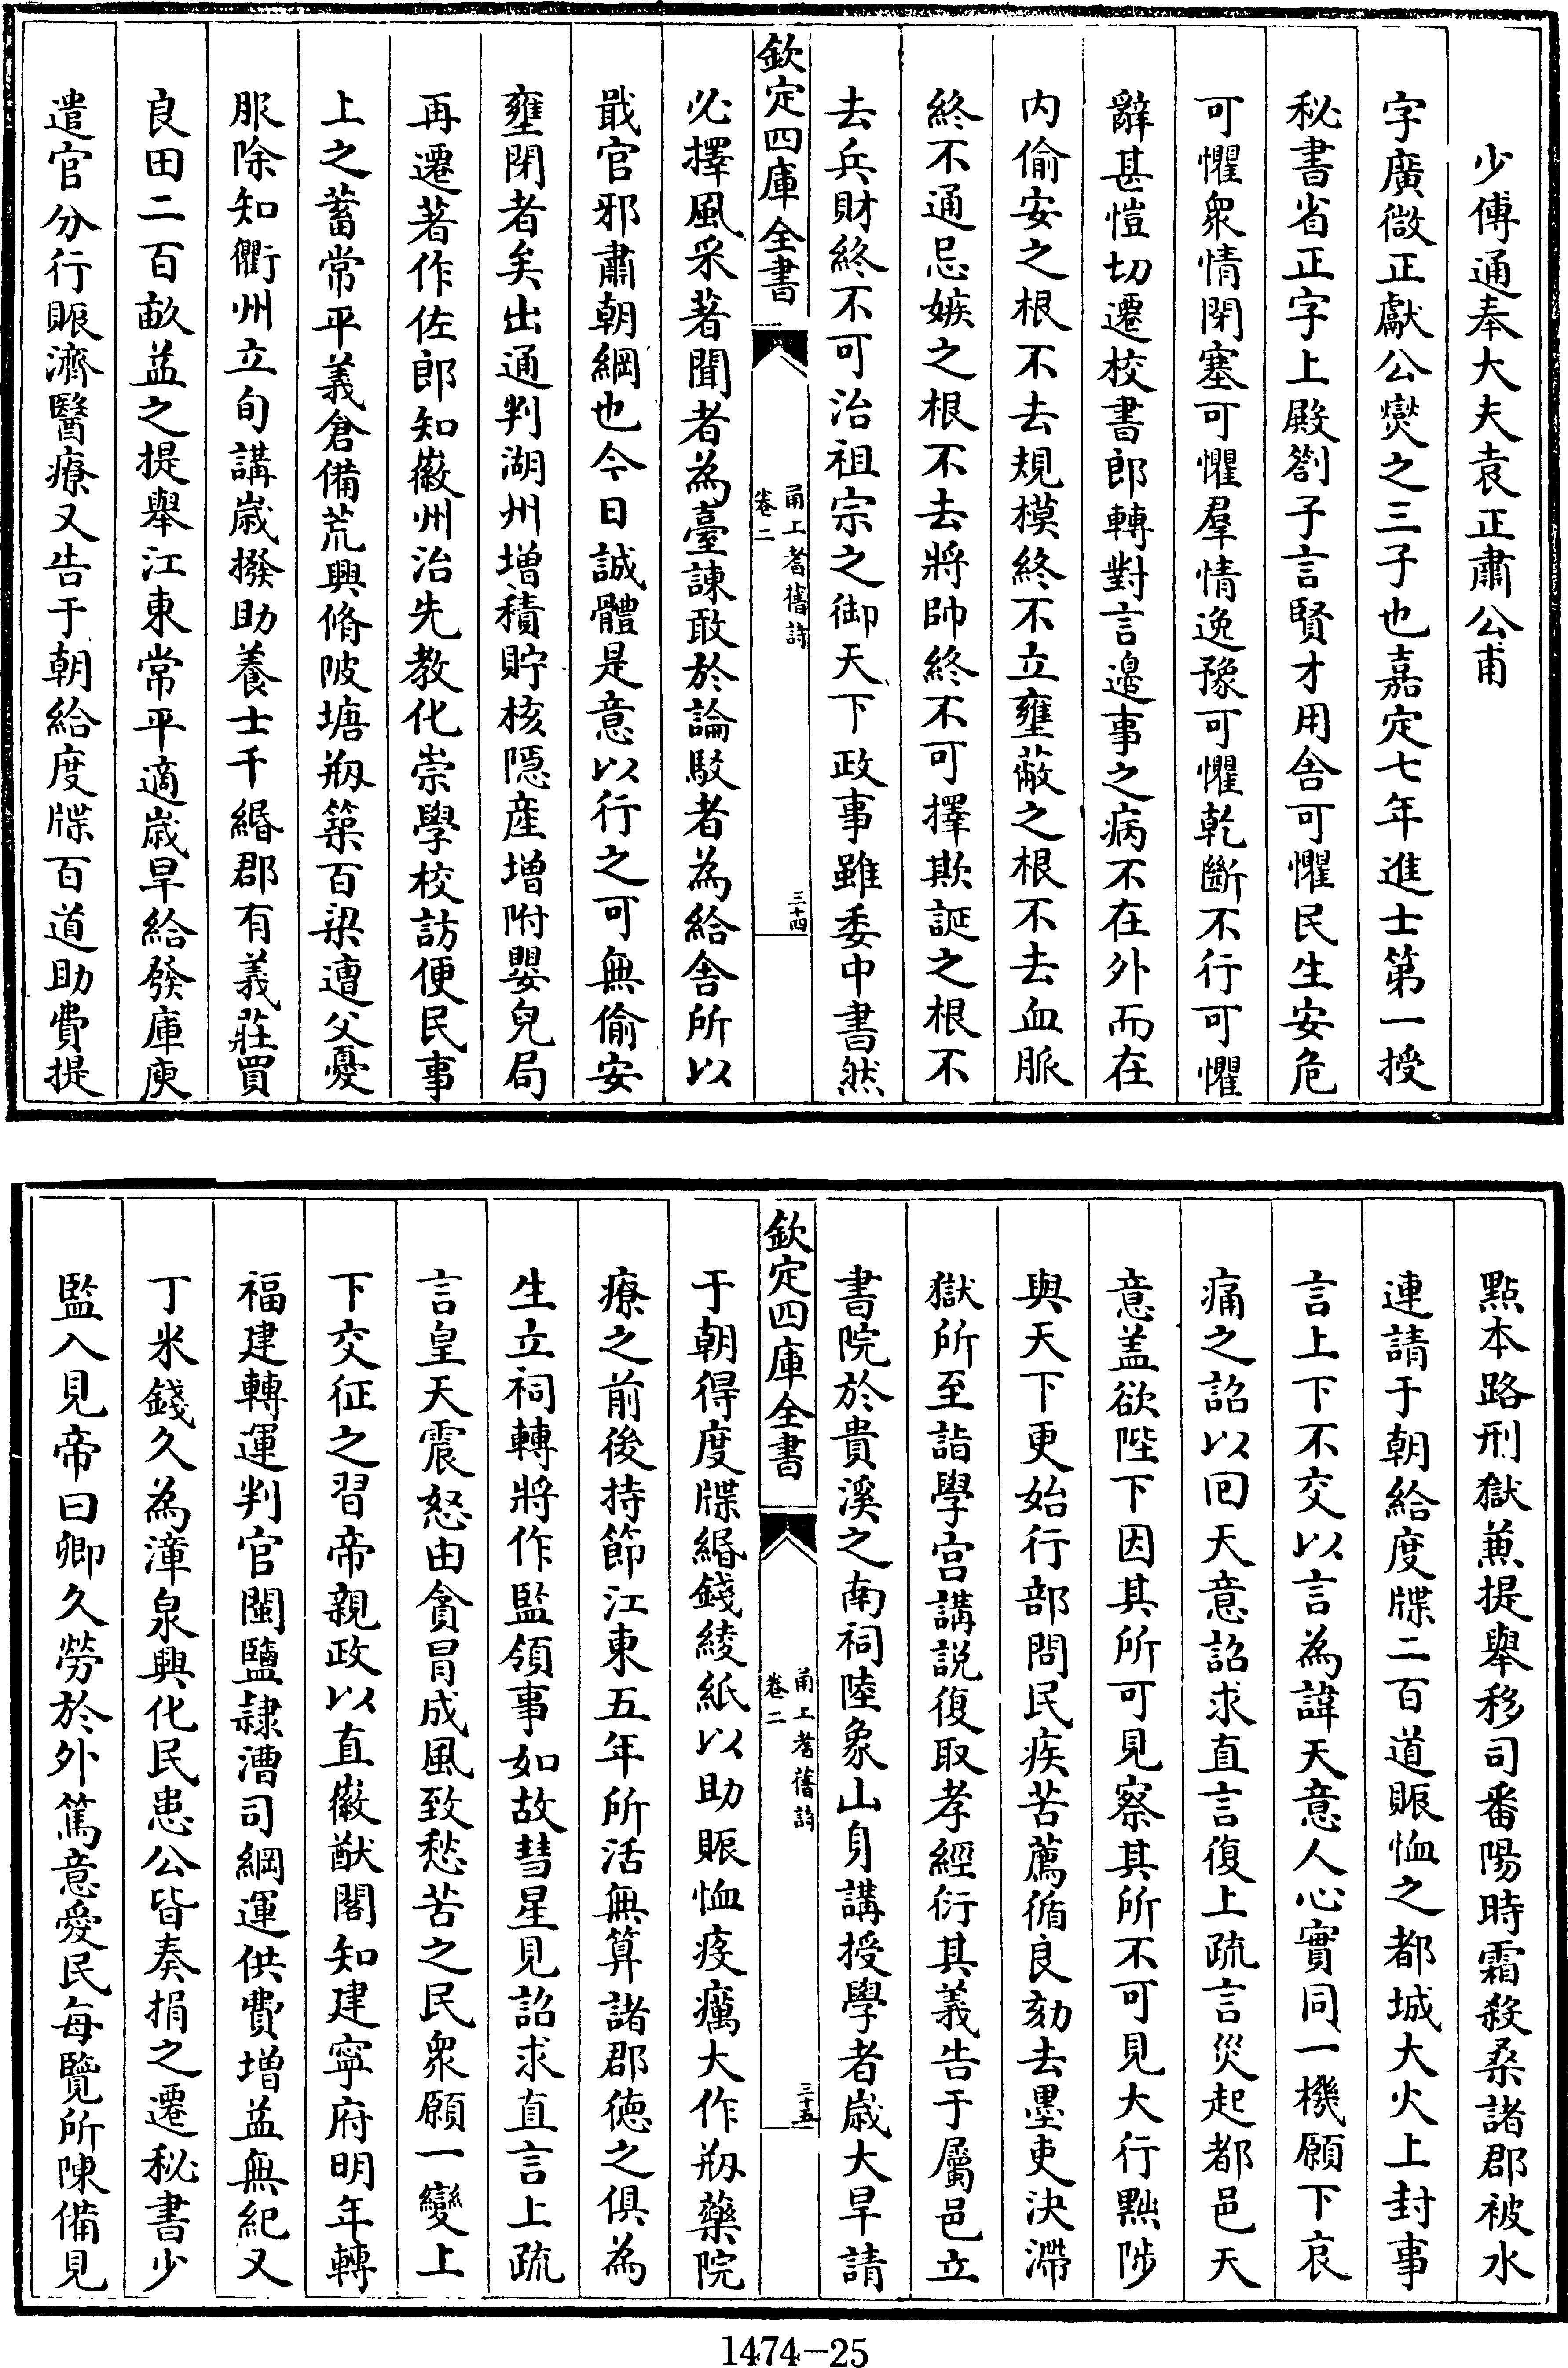 少傅通奉大夫袁正肅公甫
字廣微正獻公燮之三子也嘉定七年進士第一授
秘書省正字上殿劄子言賢才用舍可懼民生安危
可懼衆情閉塞可懼羣情逸豫可懼乾斷不行可懼
辭甚愷切遷校書郎轉對言邊事之病不在外而在
内偷安之根不去規模終不立壅蔽之根不去血脈
終不通忌嫉之根不去將帥終不可擇欺誕之根不
去兵財終不可治祖宗之御天下政事雖委中書然
欽定四庫全書
甬上耆舊詩
卷二
三十四
必擇風采著聞者為臺諫敢於論駁者為給舍所以
戢官邪肅朝綱也今日誠體是意以行之可無偷安
壅閉者矣出通判湖州增積貯核隱産增附嬰兒局
再遷著作佐郎知徽州治先教化崇學校訪便民事
上之蓄常平義倉備荒興脩陂塘剏築百梁遭父憂
服除知衢州立旬講歲撥助養士千緡郡有義莊買
良田二百畝益之提舉江東常平適歲旱給發庫庾
遣官分行賑濟醫療又告于朝給度牒百道助費提
點本路刑獄兼提舉移司番陽時霜殺桑諸郡被水
連請于朝給度牒二百道賑恤之都城大火上封事
言上下不交以言為諱天意人心實同一機願下哀
痛之詔以回天意詔求直言復上疏言災起都邑天
意盖欲陛下因其所可見察其所不可見大行黜陟
與天下更始行部問民疾苦薦循良劾去墨吏決滯
獄所至詣學宫講説復取孝經衍其義告于屬邑立
書院於貴溪之南祠陸象山身講授學者歲大旱請
欽定四庫全書
甬上耆舊詩
卷二
三十五
于朝得度牒緡錢綾紙以助賑恤疫癘大作剏藥院
療之前後持節江東五年所活無算諸郡德之俱為
生立祠轉將作監領事如故彗星見詔求直言上疏
言皇天震怒由貪冐成風致愁苦之民衆願一變上
下交征之習帝親政以直徽猷閣知建寧府明年轉
福建轉運判官閩鹽隷漕司綱運供費增益無紀又
丁米錢久為漳泉興化民患公皆奏捐之遷秘書少
監入見帝曰卿久勞於外篤意愛民每覽所陳備見
1474-25